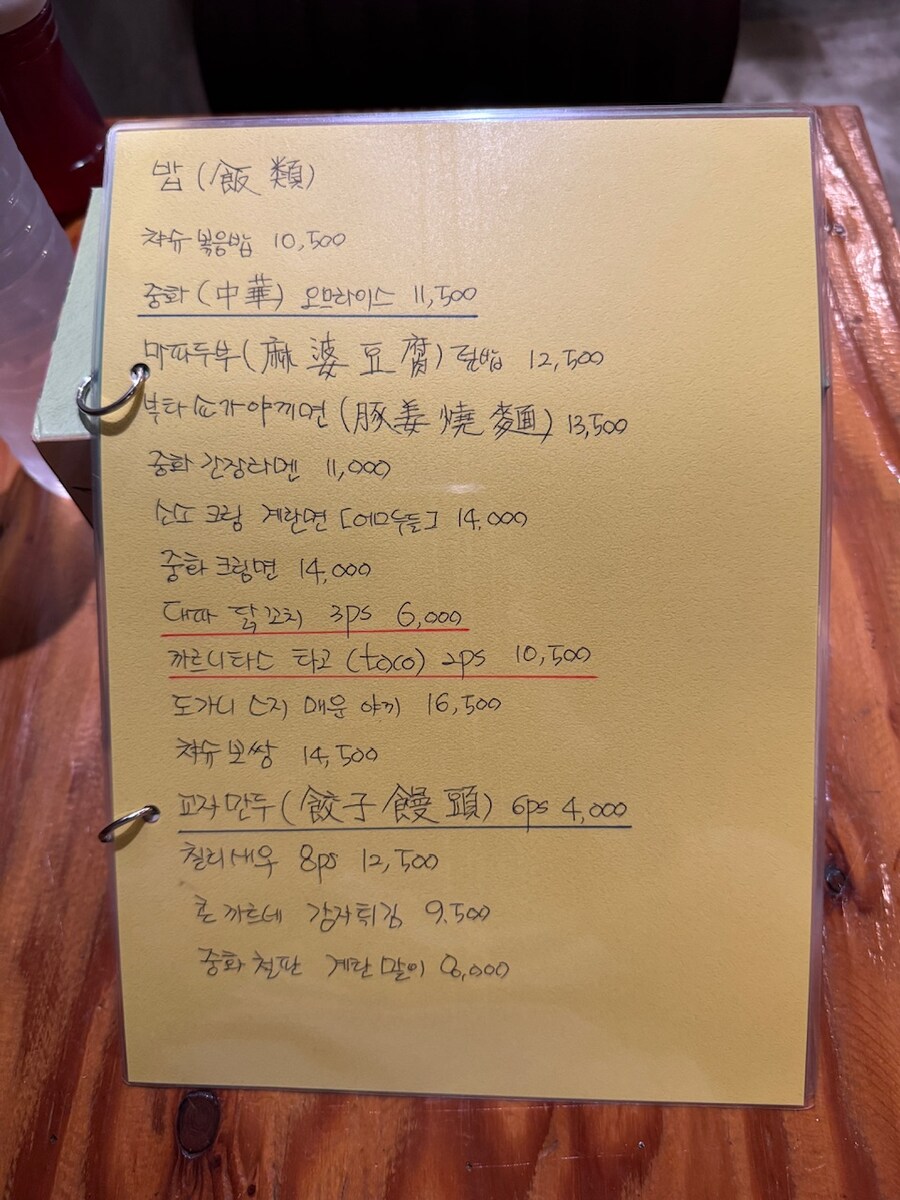 밥 (飯類)
챠슈 볶음밥 10,500
중화 (中華) 오므라이스 11,500
마파두부 (麻婆豆腐) 덮밥 12,500
부타쇼가야끼면 (豚姜燒麵) 13,500
중화 간장라멘 11,000
크림 계란면 [에그누들] 14,000
중화 크림면 14,000
대파 닭꼬치 3ps 6,000
까르니타스 타코 (taco) 2ps 10,500
도가니 스지 매운 야끼 16,500
챠슈 보쌈 14,500
교자만두 (餃子饅頭) 6ps 4,000
칠리새우 8ps 12,500
콘 까르네 감자튀김 9.500
중화 철판 계란말이